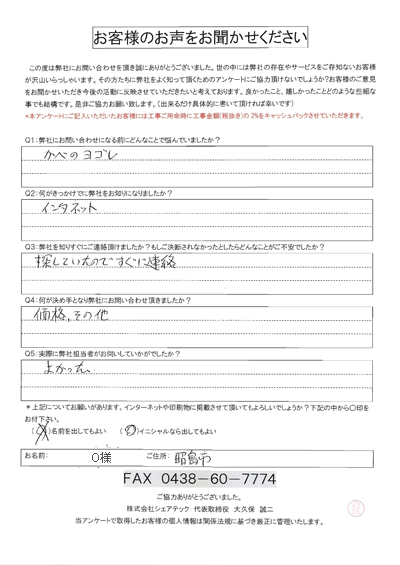 お客様のお声をお聞かせください
この度は弊社にお問い合わせを頂き誠にありがとうございました。世の中には弊社の存在やサービスをご存知ないお客様
が沢山いらっしゃいます。その方たちに弊社をよく知って頂くためのアンケートにご協力頂けないでしょうか?お客様のご意見
をお聞かせいただき今後の活動に反映させていただきたいと考えております。良かったこと、嬉しかったことどのような些細な
事でも結構です。是非ご協力お願い致します。(出来るだけ具体的に書いて頂ければ幸いです)
*本アンケートにご記入いただいたお客様には工事ご用命時に工事金額(税抜き)の 2%をキャッシュバックさせていただきます。
Q1:弊社にお問い合わせになる前にどんなことで悩んでいましたか?
かべのヨゴレ
Q2:何がきっかけでに弊社をお知りになりましたか?
インタネット
Q3:弊社を知りすぐにご連絡頂けましたか?もしご決断されなかったとしたらどんなことがご不安でしたか?
探していたのですぐに連絡
Q4:何が決め手となり弊社にお問い合わせ頂きましたか?
価格、その他
Q5:実際に弊社担当者がお伺いしていかがでしたか?
よかった、
* 上記についてお願いがあります。インターネットや印刷物に掲載させて頂いてもよろしいでしょうか?下記の中から〇印を
お付下さい。
( )名前を出してもよい (〇)イニシャルなら出してもよい
お名前: O様 ご住所: 昭島市
FAX 0438-60-7774
ご協力ありがとうございました。
株式会社シェアテック 代表取締役 大久保 誠二
当アンケートで取得したお客様の個人情報は関係法規に基づき厳正に管理いたします。